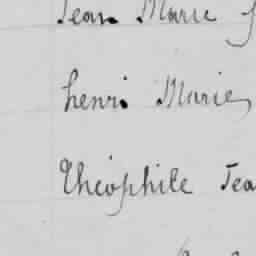 Jean Marie
henri Marie
Théophile Jea